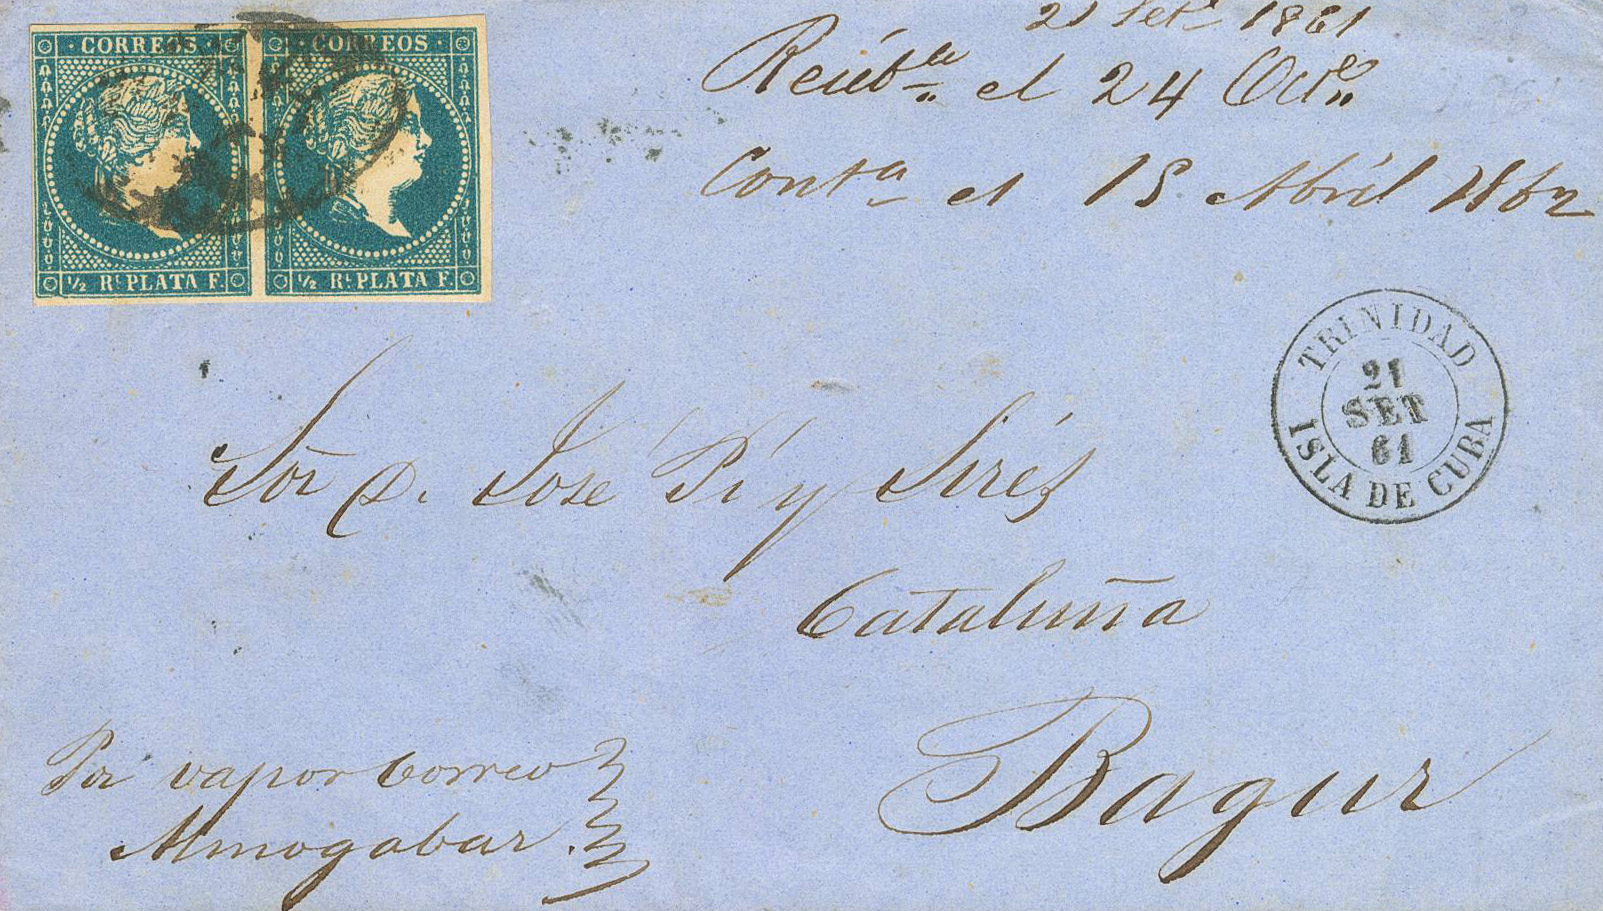 CORREOS CORREOS
½ Rl PLATA F. ½ Rl PLATA F.
21 Set.e 1861
Recib.da el 24 Oct.e
Cont.a el 15 Abril 1862
TRINIDAD
21
SET
61
ISLA DE CUBA
Sor D. José Pi y Sirés
Cataluña
Bagur
Por vapor Correo
Almogabar.